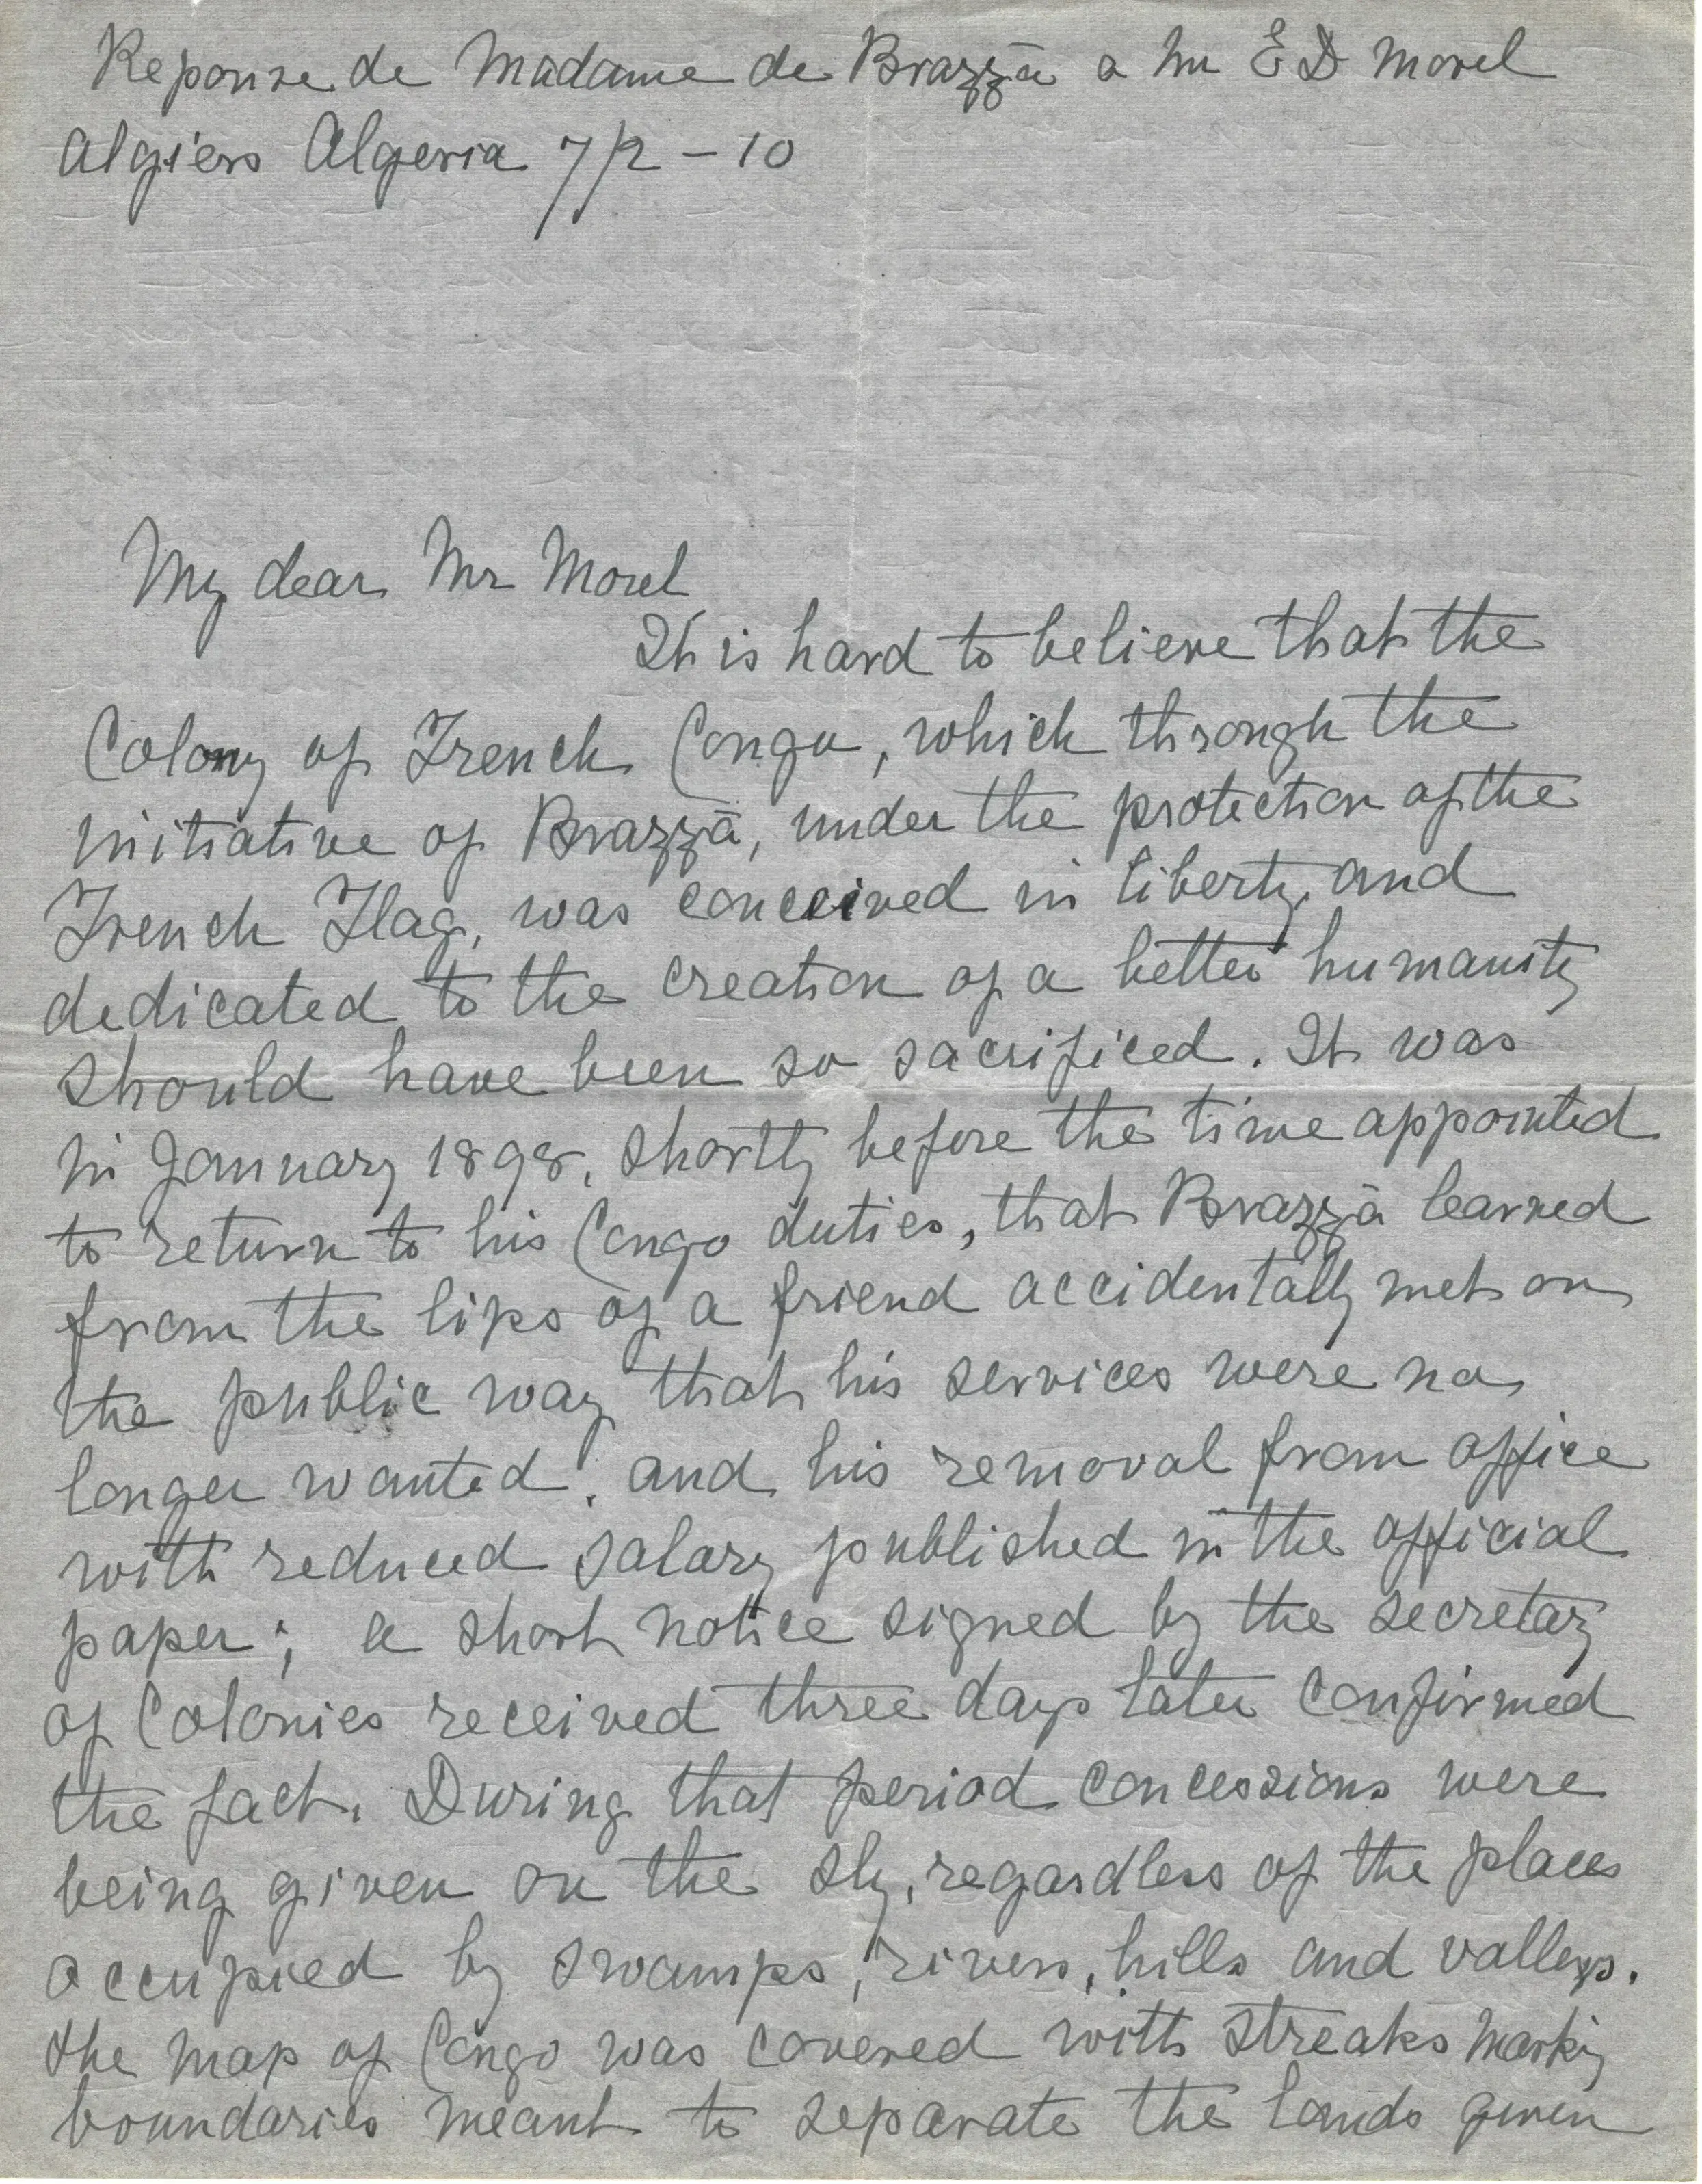 Reponse de Madame de Brazzà a Mr E D Morel
Algiers Algeria 7/2 - 10
My dear Mr Morel
It is hard to believe that the
Colony of French Congo, which through the
initiative of Brazzà, under the protection of the
French Flag, was conceived in liberty, and
dedicated to the creation of a better humanity
should have been so sacrificed. It was
in January 1898, shortly before the time appointed
to return to his Congo duties, that Brazzà learned
from the lips of a friend accidentally met on
the public way that his services were no
longer wanted, and his removal from office
with reduced salary published in the official
paper; a short notice signed by the secretary
of Colonies received three days later confirmed
the fact. During that period concessions were
being given on the sly, regardless of the places
occupied by swamps, rivers, hills and valleys.
the map of Congo was covered with streaks marking
boundaries meant to separate the lands given